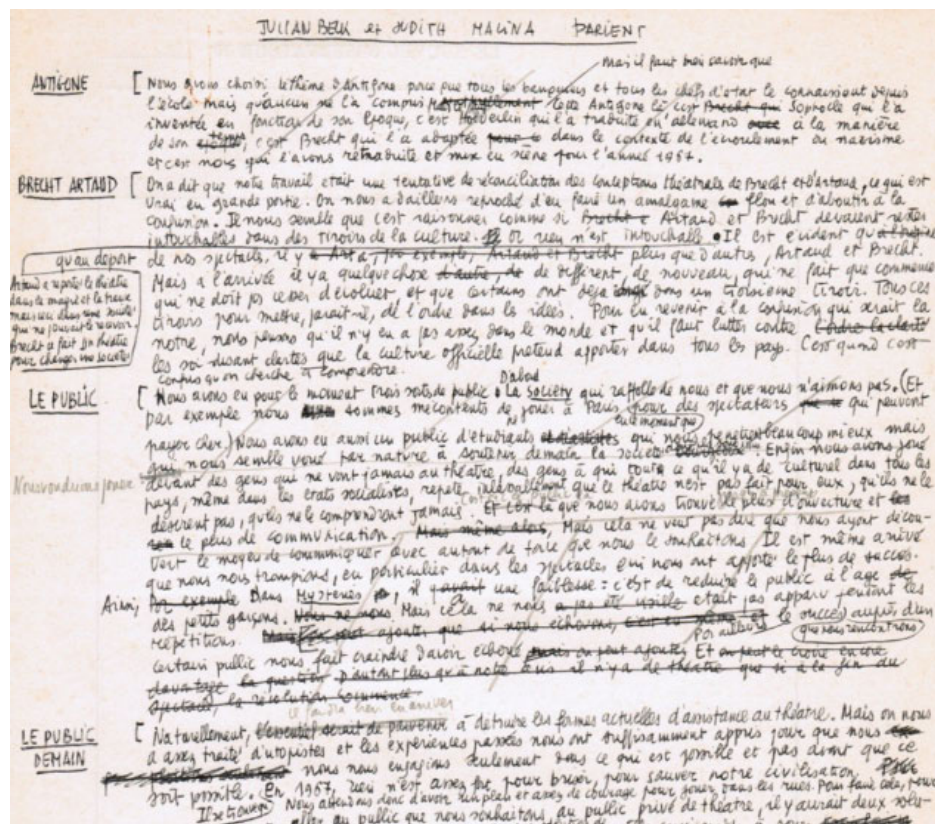 JULIAN BECK et JUDITH MALINA PARLENT
mais il faut bien savoir que
ANTIGONE [ Nous avons choisi le thème d'Antigone parce que tous les banquiers et tous les chefs d'état le connaissent depuis
l'école mais qu'aucun ne l'a compris cette Antigone là c'est Brecht qui Sophocle qui l'a
inventée en fonction de son époque, c'est Hölderlin qui l'a traduite en allemand avec à la manière
de son époque, temps c'est Brecht qui l'a adaptée pour dans le contexte de l'écroulement du nazisme
et c'est nous qui l'avons retraduite et mise en scène pour l'année 1967.
BRECHT ARTAUD [ On a dit que notre travail était une tentative de réconciliation des conceptions théâtrales de Brecht et d'Artaud, ce qui est
vrai en grande partie. On nous a d'ailleurs reproché d'en faire un amalgame flou et d'aboutir à la
confusion. Il nous semble que c'est raisonner comme si Brecht Artaud et Brecht devaient rester
intouchables dans des tiroirs de la culture. Or rien n'est intouchable. Il est évident qu'
qu'au départ de nos spectacles, il y a Arta, par exemple, Artaud et Brecht plus que d'autres, Artaud et Brecht.
Mais à l'arrivée il y a quelque chose d'autre, de de différent, de nouveau, qui ne fait que commencer
qui ne doit pas cesser d'évoluer et que certains ont déjà dans un troisième tiroir. Tous ces
tiroirs pour mettre, paraît-il, de l'ordre dans les idées. Pour en revenir à la confusion qui serait la
notre, nous pensons qu'il n'y en a pas assez dans le monde et qu'il faut lutter contre l'ordre la clarté
les soi-disant clartés que la culture officielle prétend apporter dans tous les pays. C'est quand c'est
confus qu'on cherche à comprendre.
Artaud a rejeté le théâtre
dans la magie et la transe
mais vécu dans une société
qui ne pouvait le recevoir.
Brecht a fait du théâtre
pour changer une société
D'abord
LE PUBLIC [ Nous avons eu pour le moment trois sortes de public : La society qui raffole de nous et que nous n'aimons pas. (Et
par exemple nous sommes mécontents de jouer à Paris pour des spectateurs qui peuvent
payer cher.) Nous avons eu aussi un public d'étudiants qui nous beaucoup mieux mais
qui nous semble voué par nature à soutenir demain la society. Enfin nous avons joué
Nous voudrions jouer devant des gens qui ne vont jamais au théâtre, des gens à qui tout ce qu'il y a de culturel dans tous les
pays, même dans les états socialistes, répète inlassablement que le théâtre n'est pas fait pour eux, qu'ils ne le
désirent pas, qu'ils ne le comprendront jamais. Et c'est là que nous avons trouvé le plus d'ouverture et
le plus de communication. Mais même alors, Mais cela ne veut pas dire que nous ayons décou-
vert le moyen de communiquer avec autant de force que nous le souhaitons. Il est même arrivé
que nous nous trompions, en particulier dans les spectacles qui nous ont apporté le plus de succès.
Ainsi, par exemple dans Mysteries, il y avait une faiblesse : c'est de réduire le public à l'âge de
des petits garçons. Mais cela ne nous a pas été visible était pas apparu pendant les
répétitions. ajouter que si nous échouons, le succès auprès d'un
Par ailleurs que nous rencontrons
certain public nous fait craindre d'avoir échoué mais on peut ajouter Et on peut le croire encore
davantage la question D'autant plus qu'à notre avis il n'y a de théâtre que si à la fin du
spectacle, la révolution commence.
il faudra bien en arriver
LE PUBLIC DEMAIN [ Naturellement, à détruire les formes actuelles d'assistance au théâtre. Mais on nous
a assez traité d'utopistes et les expériences passées nous ont suffisamment appris pour que nous
nous nous engagions seulement dans ce qui est possible et pas avant que ce
soit possible. En 1967, rien n'est assez fort pour briser, pour sauver notre civilisation.
Nous attendons donc d'avoir un plan et assez de courage pour jouer dans les rues. Pour faire cela, pour
aller au public que nous souhaitons, au public privé de théâtre, il y aurait deux solu-